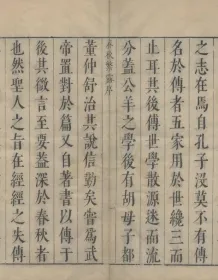 之志在焉自孔子沒莫不有傳
名於傳者五家用於世纔三而
止耳其後傳世學散源迷而流
分蓋公羊之學後有胡母子都
春秋繁露序
董仲舒治其說信勤矣嘗爲武
帝置對於篇又自著書以傳于
後其微言至要蓋深於春秋者
也然聖人之旨在經經之失傳